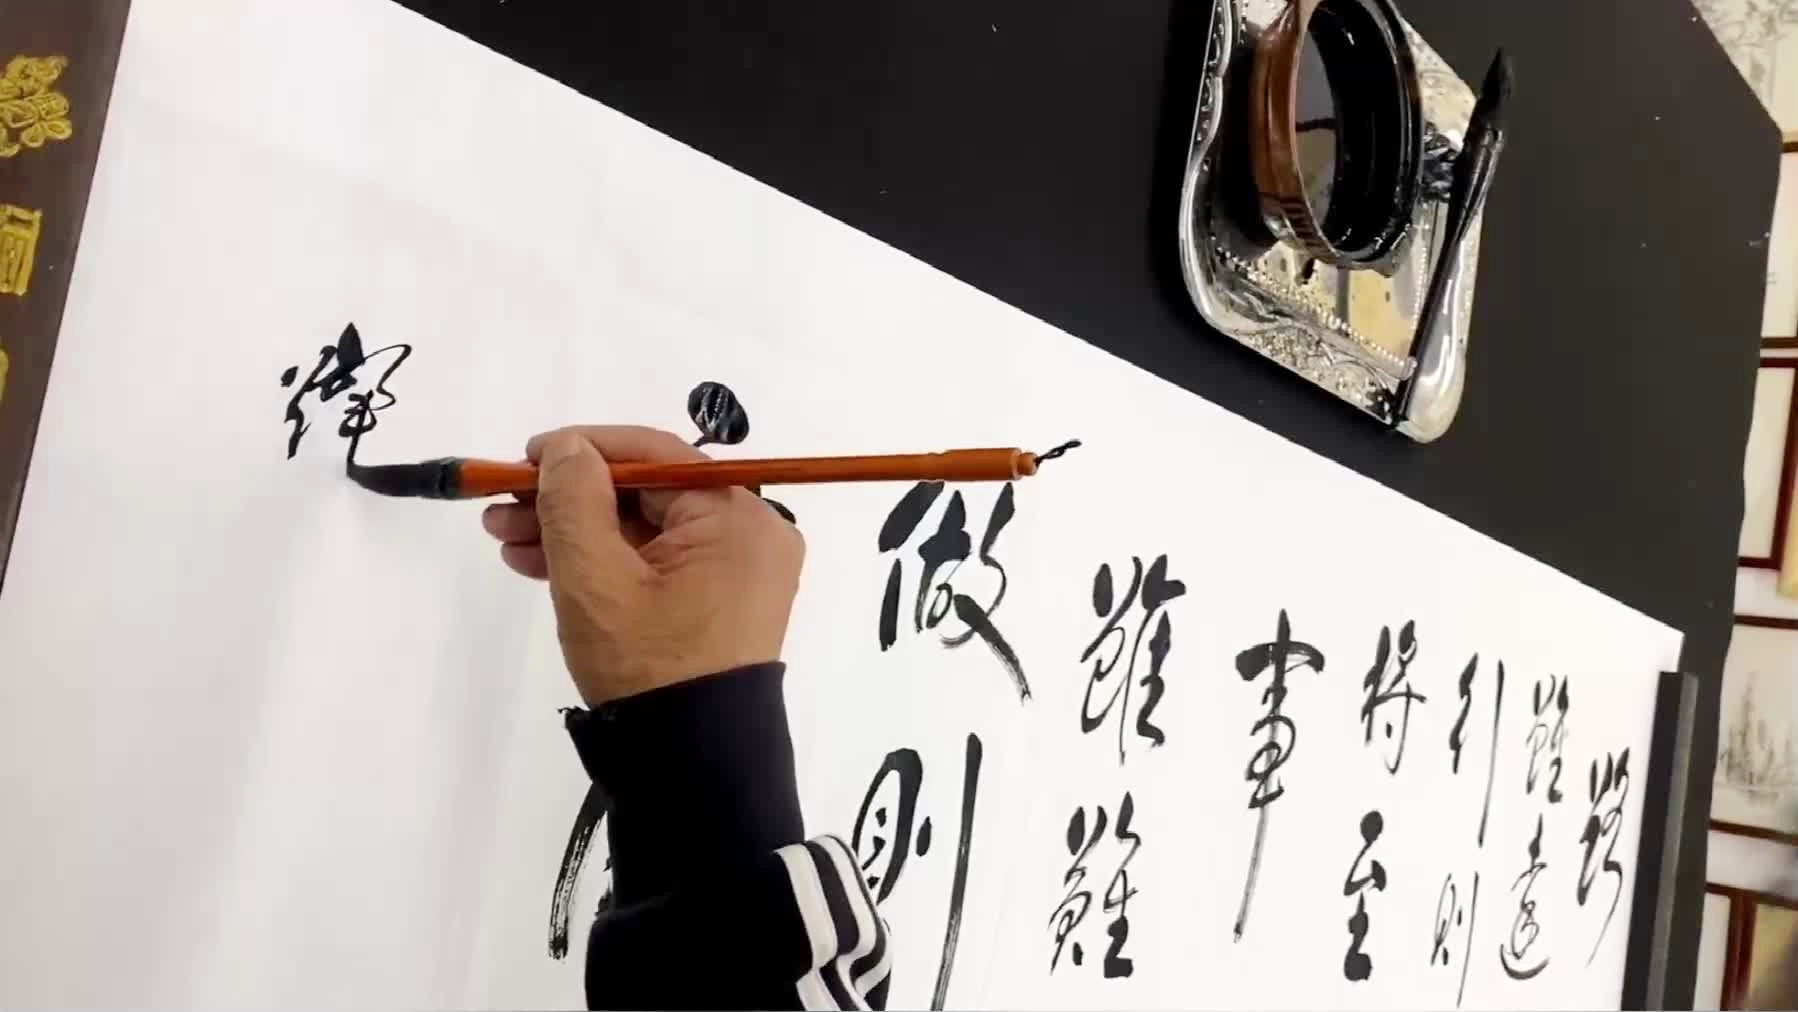 路
雖遠
行則
將至
事
雖難
做則